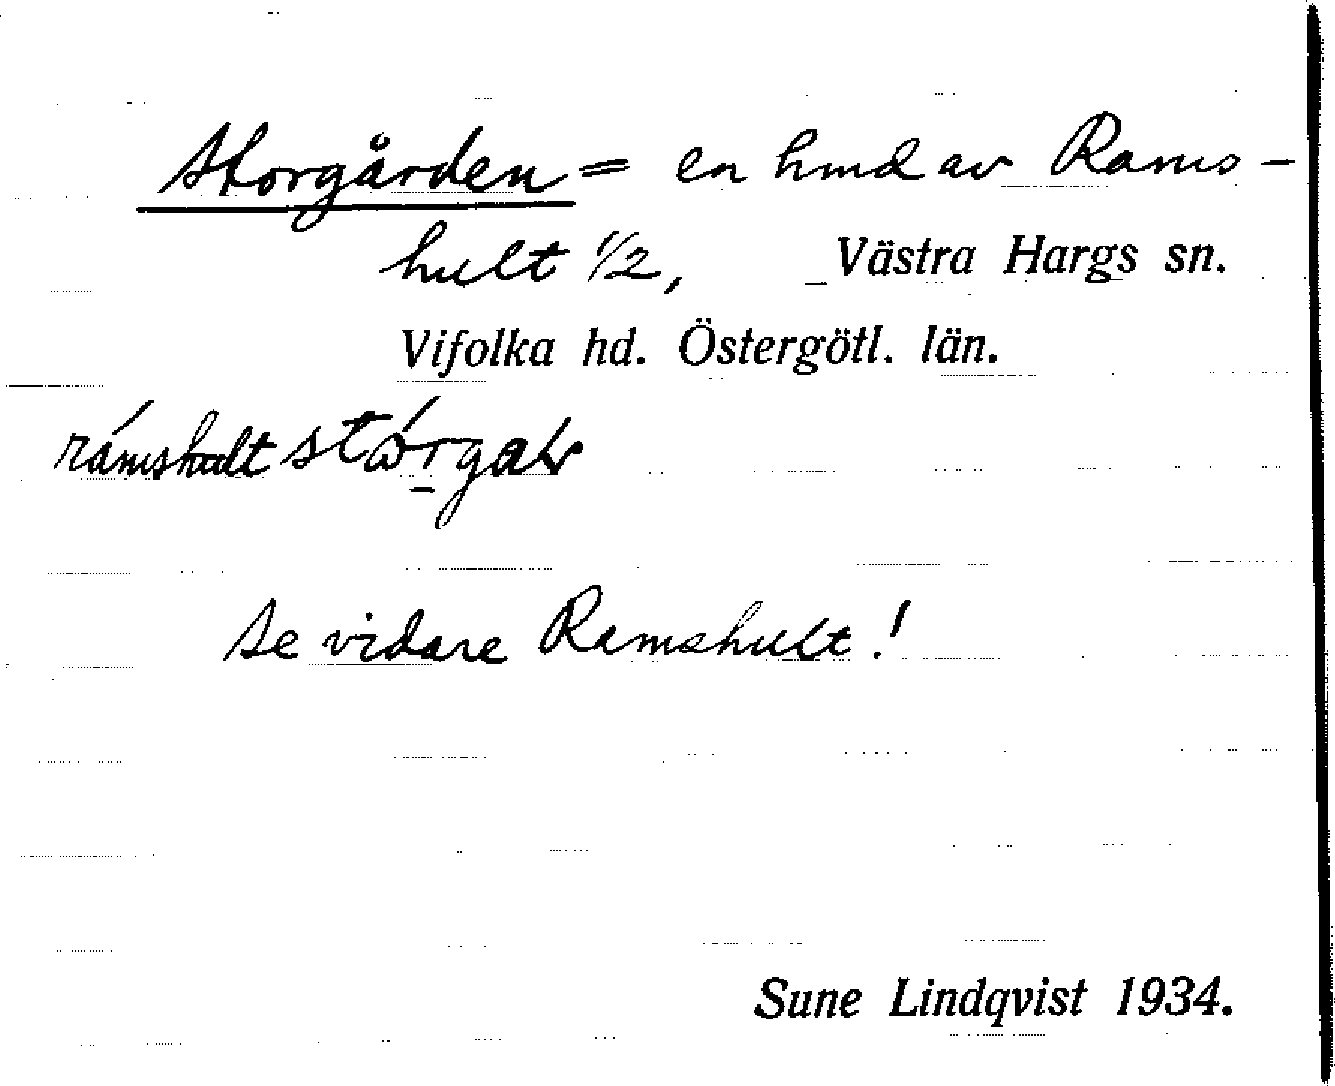 Storgården = en hmd av Rams-
hult 1/2, Västra Hargs sn.
Vifolka hd. Östergötl. län.
rámshult
Se vidare Ramshult!
Sune Lindqvist 1934.